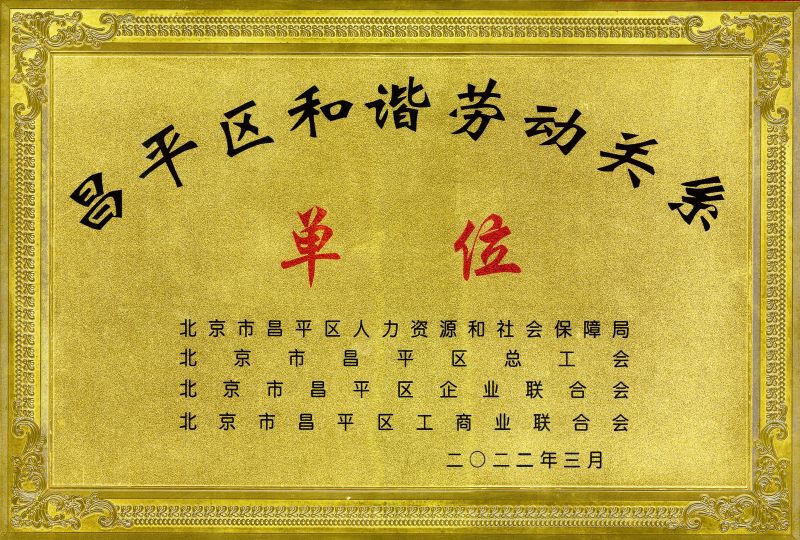 昌平区和谐劳动关系
单位
北京市昌平区人力资源和社会保障局
北京市昌平区总工会
北京市昌平区企业联合会
北京市昌平区工商业联合会
二〇二二年三月